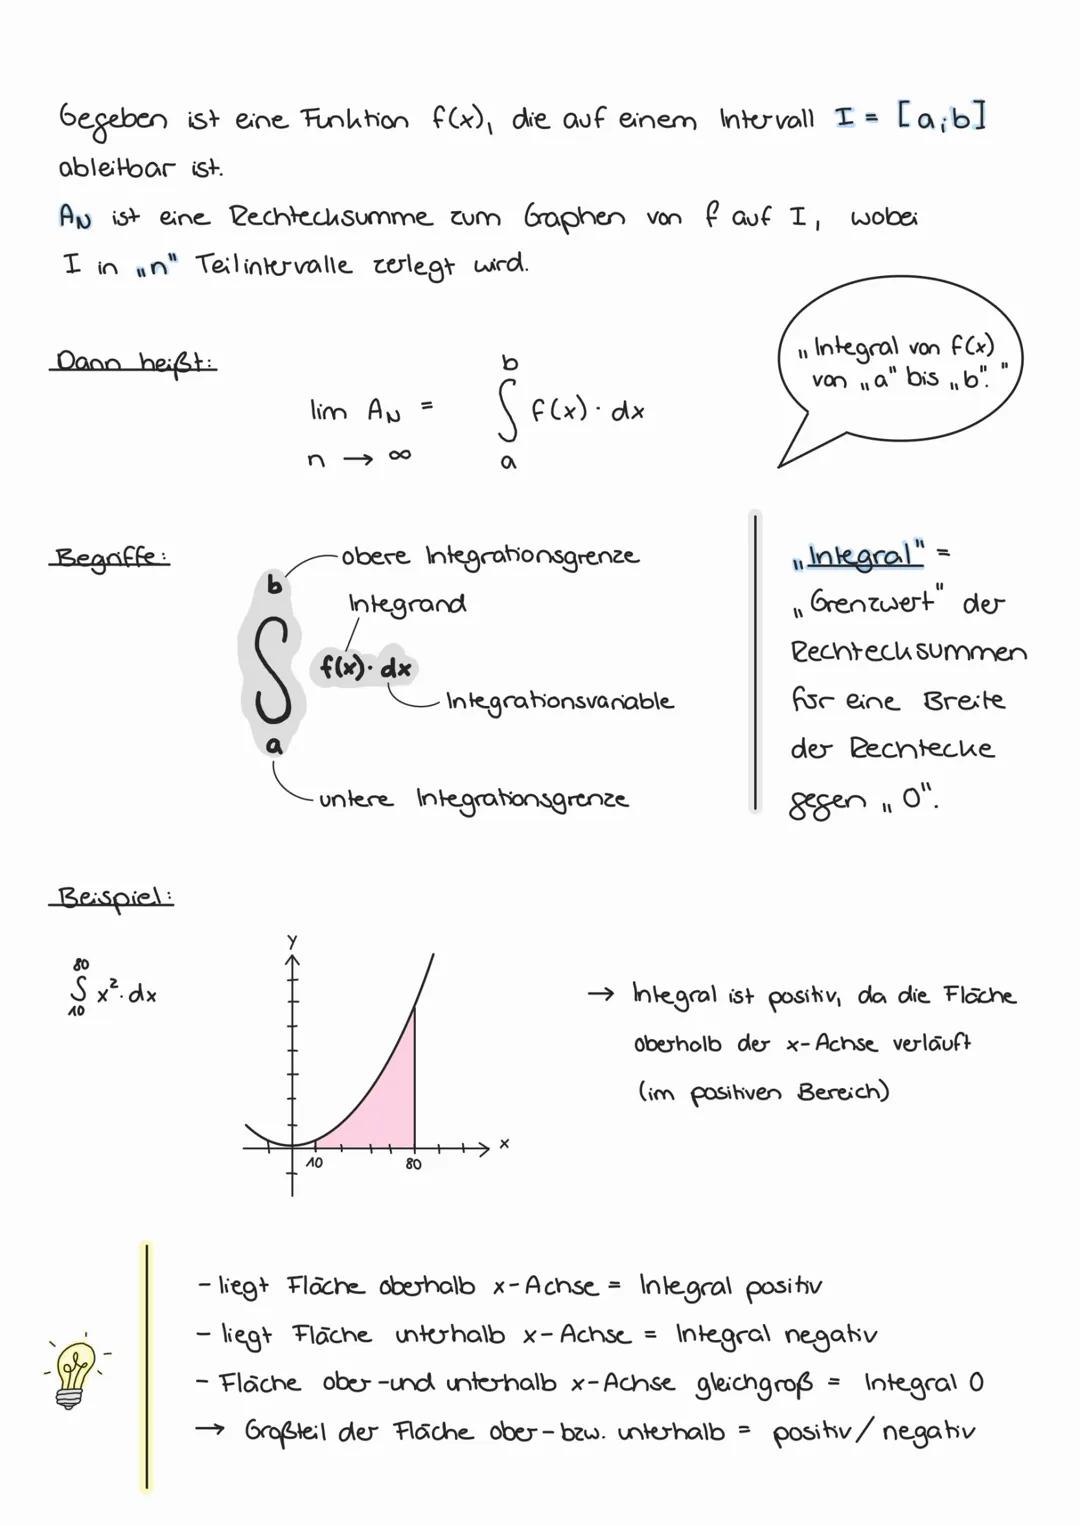 Gegeben ist eine Funktion f(x), die auf einem Intervall I = [a;b]
ableitbar ist.
A_N ist eine Rechtecksumme zum Graphen von f auf I, wobei
I in „n" Teilintervalle zerlegt wird.
Dann heißt:
lim A_N = ∫ f(x) · dx
b
a
n → ∞
„Integral von f(x)
von „a" bis „b"."
Begriffe:
obere Integrationsgrenze
b
Integrand
∫ f(x) · dx
Integrationsvariable
a
untere Integrationsgrenze
„Integral" =
„Grenzwert" der
Rechtecksummen
für eine Breite
der Rechtecke
gegen „0".
Beispiel:
80
∫ x². dx
10
y
x
10
80
→ Integral ist positiv, da die Fläche
oberhalb der x-Achse verläuft
(im positiven Bereich)
- liegt Fläche oberhalb x-Achse = Integral positiv
- liegt Fläche unterhalb x-Achse = Integral negativ
- Fläche ober-und unterhalb x-Achse gleichgroß = Integral 0
→ Großteil der Fläche ober- bzw. unterhalb = positiv/negativ